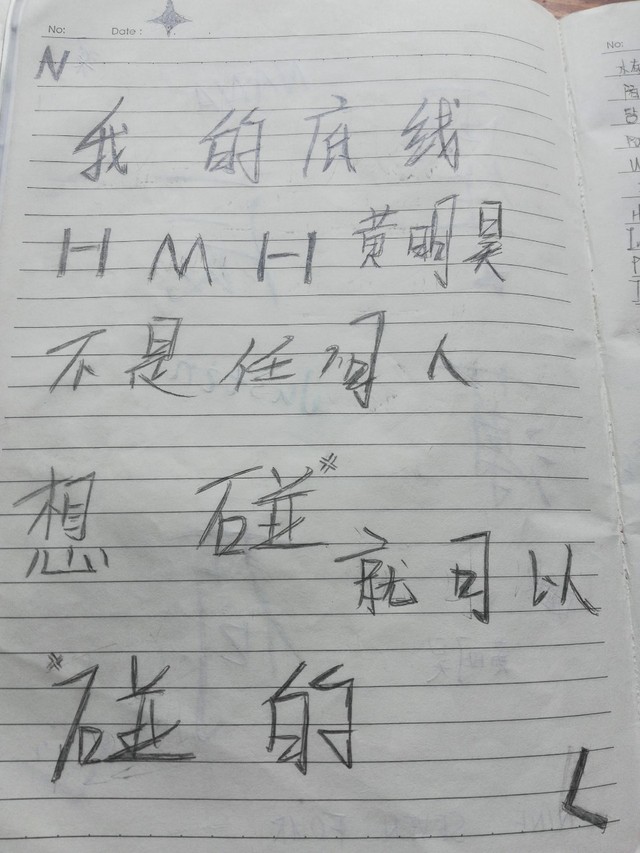 No: Date:
N
我的底线
HMH 黄明昊
不是任何人
想碰
就可以
碰的
L
No: